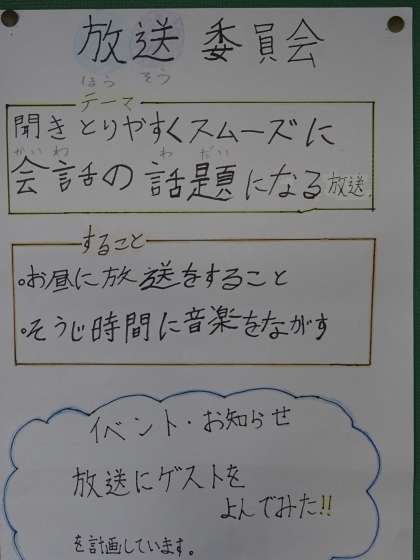 放送委員会
ほう そう
テーマ
聞きとりやすくスムーズに
かい わ わ だい
会話の話題になる放送
すること
・お昼に放送をすること
・そうじ時間に音楽をながす
イベント・お知らせ
放送にゲストを
よんでみた!!
を計画しています。